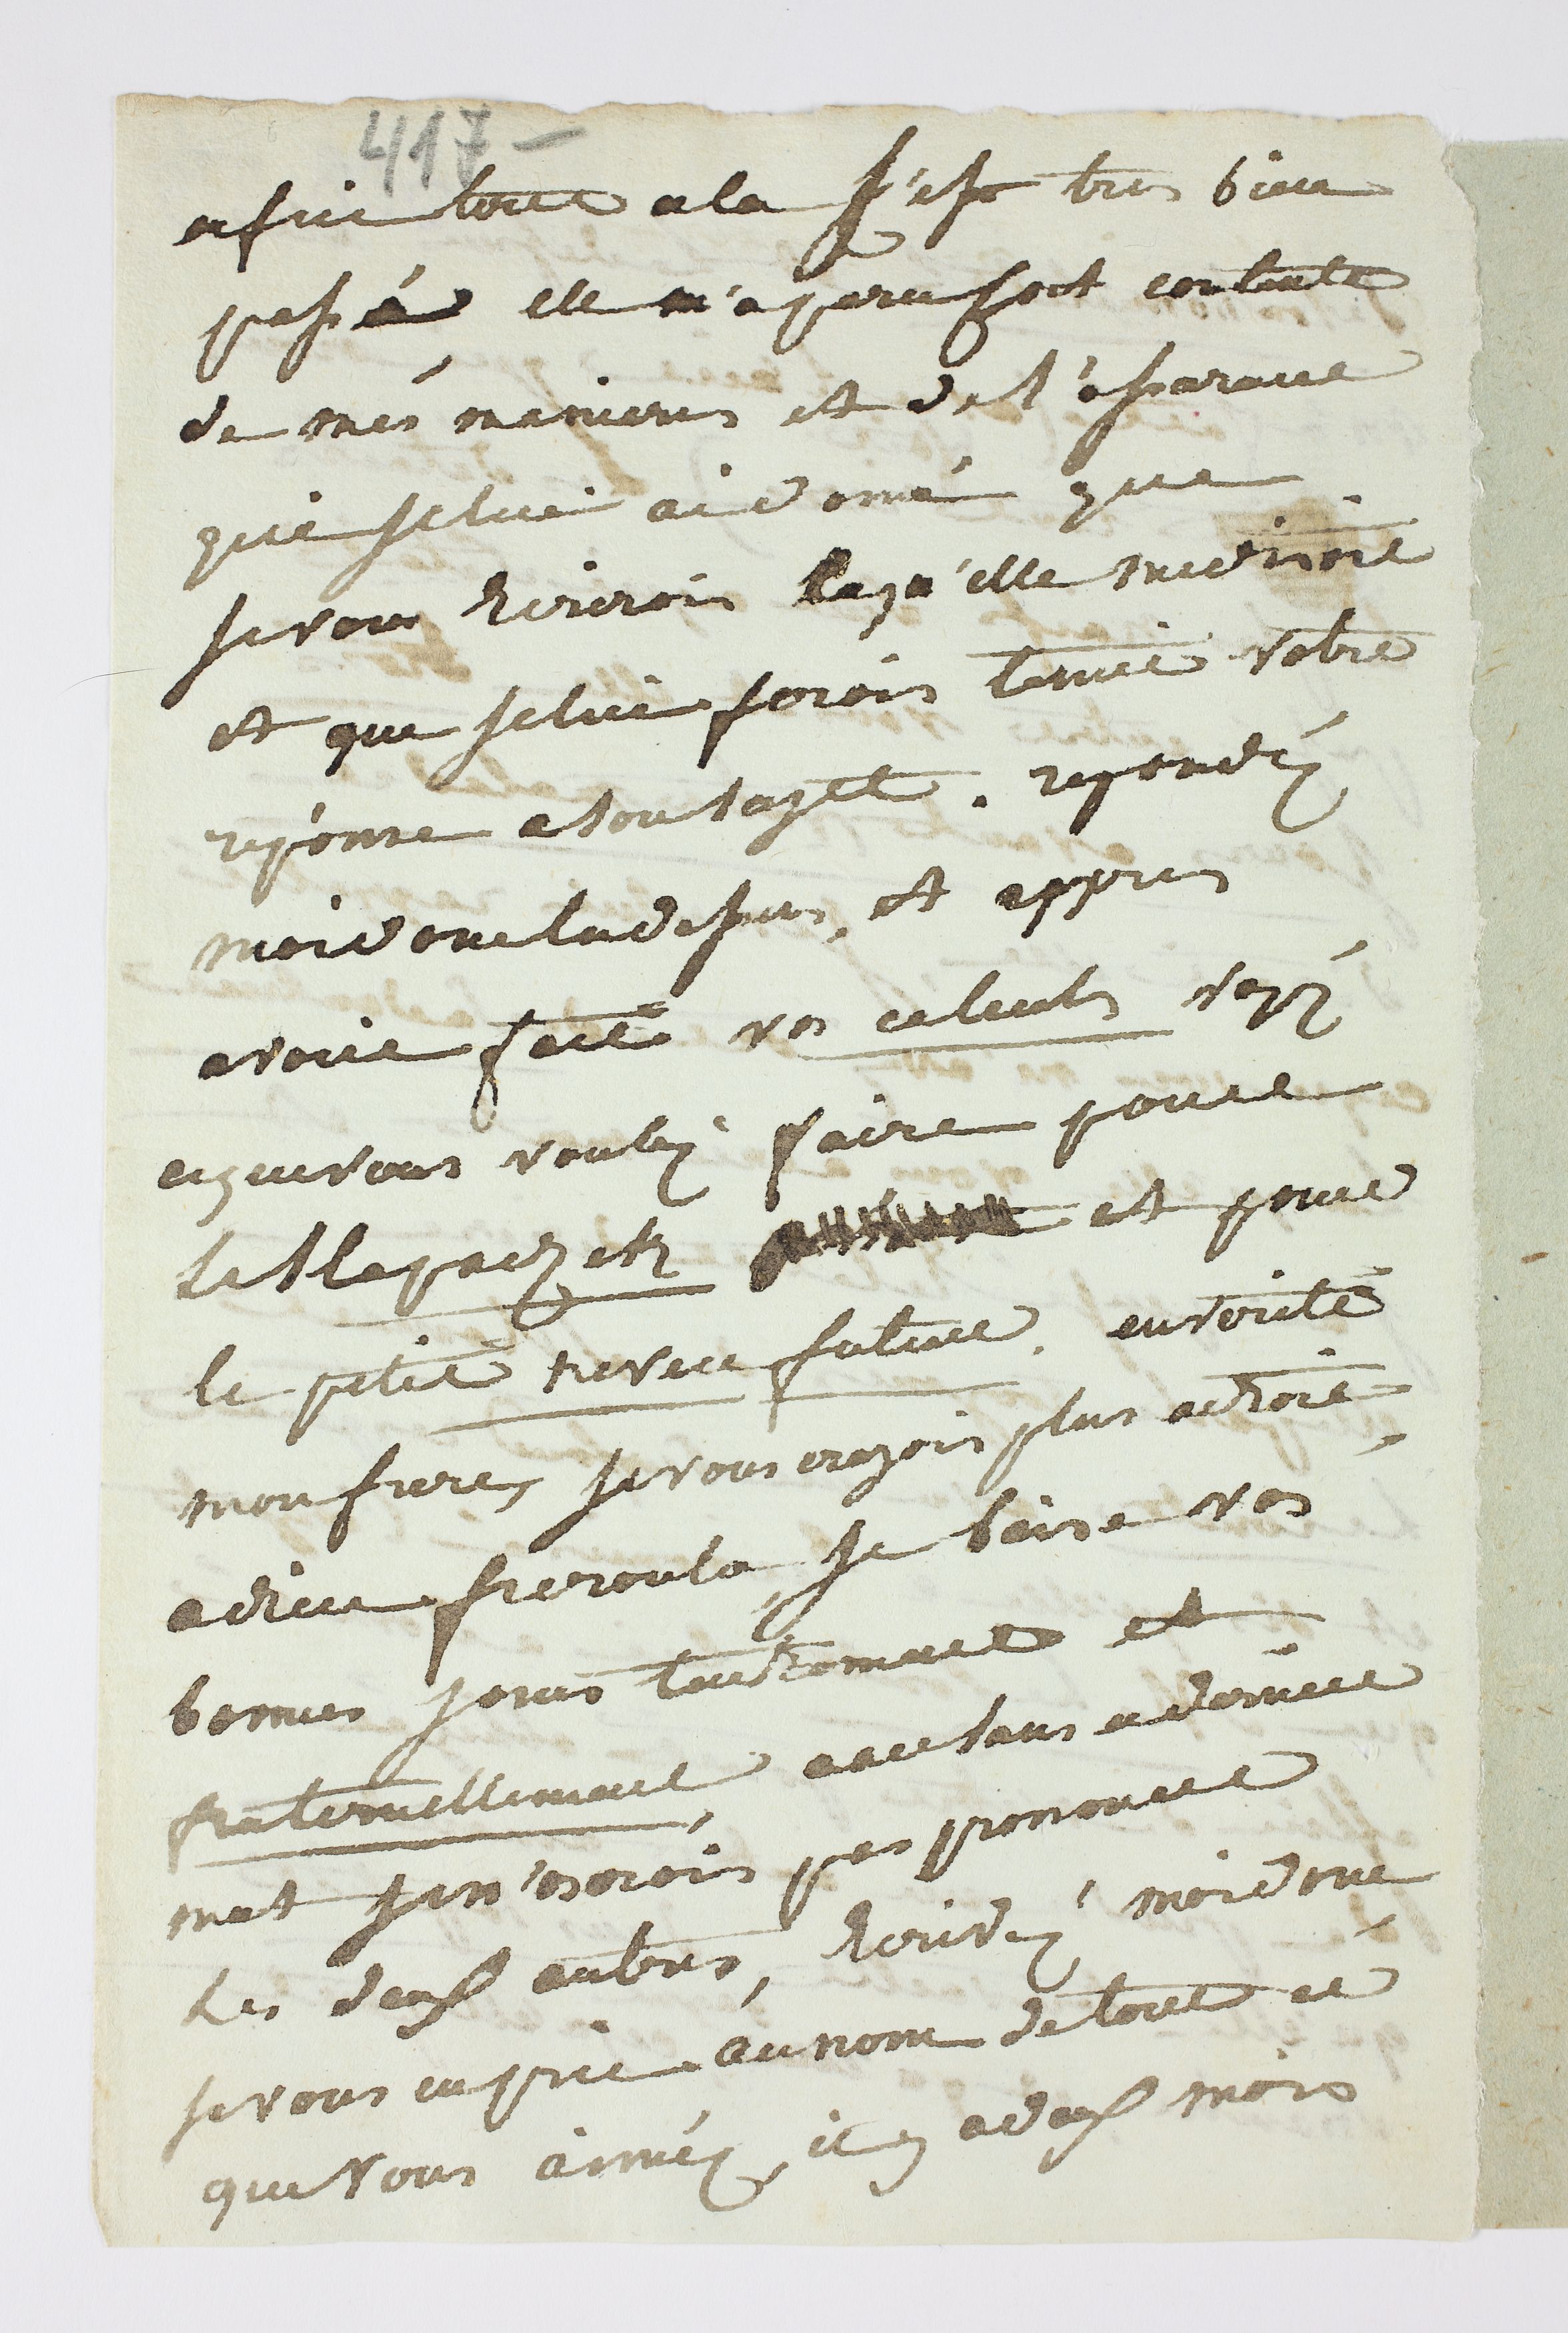 417-
enfin tout cela s'est tres bien
passé elle m'a paru fort contente
de més manieres et de l'ésparance
que je lui ai donné que
je vous écrirois ce qu'elle me disoit
et que je lui ferois tenir votre
reponse a son sujet. repondéz
moi donc la dessus, et appres
avoir fait vos calculs voyéz
ce que vous vouléz faire pour
le et pour
le petit neveu future. en verité
mon frere, je vous croyois plus adroit
adieu freroula, je baise vos
bonnes joues tendrement et
fraternellement car sans ce dernier
mot je n'oserois pas prononcer
les deux autres, écrivéz moi donc
je vous en prie au nom de tout ce
que vous aiméz, il y a deux mois